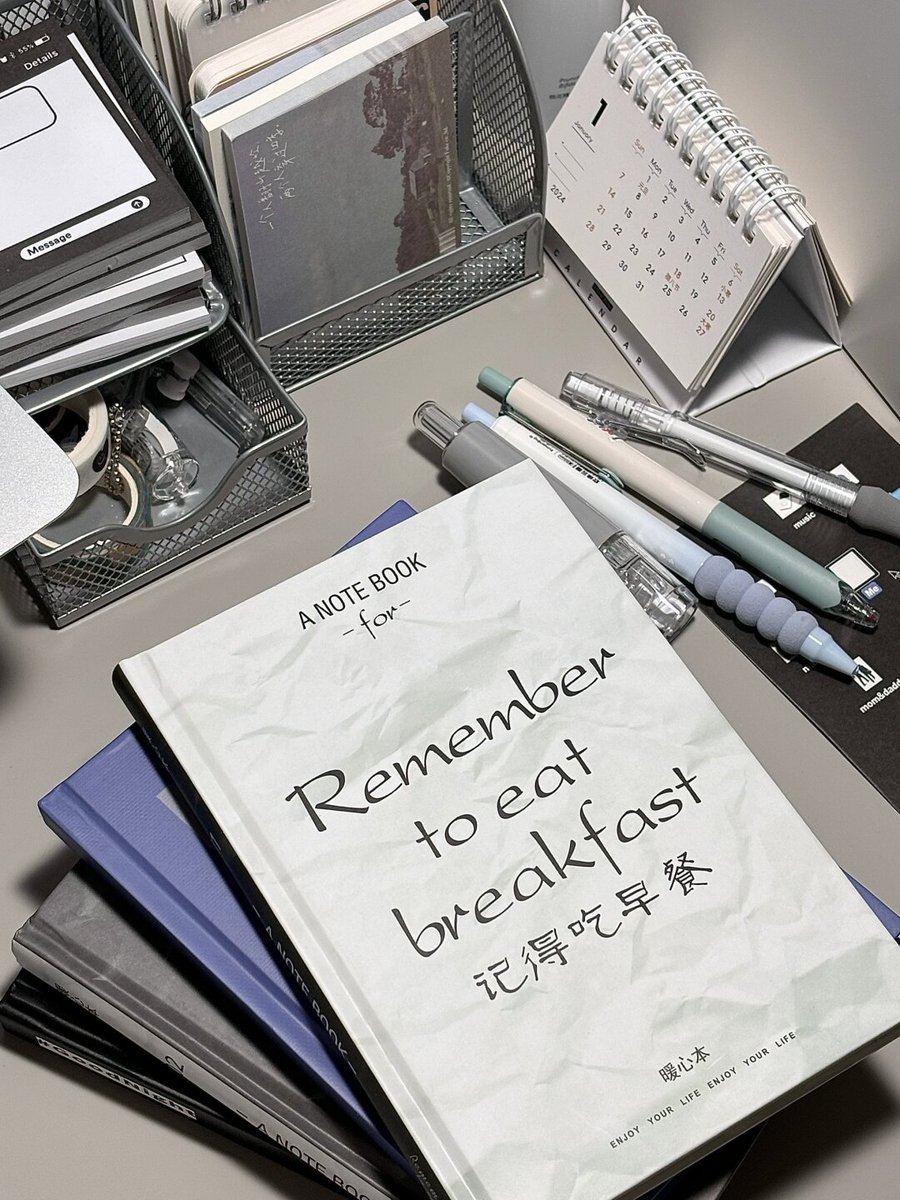 55%
Details
Message
1
January
2024
Sun Mon Tue Wed Thu Fri Sat
1 2 3 4 5 6
元旦 小寒
7 8 9 10 11 12 13
14 15 16 17 18 19 20
腊八节 大寒
21 22 23 24 25 26 27
28 29 30 31
CALENDAR
music
Me
mom&dadd
A NOTE BOOK
-for-
Remember
to eat
breakfast
记得吃早餐
暖心本
ENJOY YOUR LIFE ENJOY YOUR LIFE
A NOTE BOOK
2
A NOTE BOOK
#GoodNight